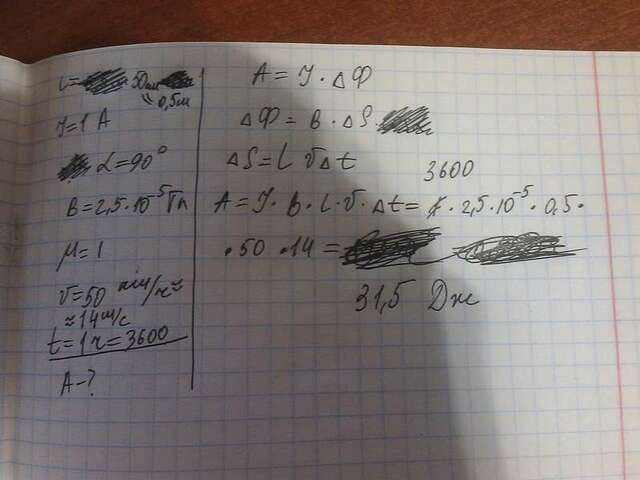 l= 50см
≈ 0,5м
J=1 A
α=90°
B=2,5·10⁻⁵ Тл
μ=1
v=50 км/ч ≈
≈14 м/с
t=1ч=3600
A-?
A=J·ΔФ
ΔФ=B·ΔS·
ΔS=L vΔt
3600
A=J·B·L·v·Δt=1·2,5·10⁻⁵·0,5·
·50·14=
31,5 Дж